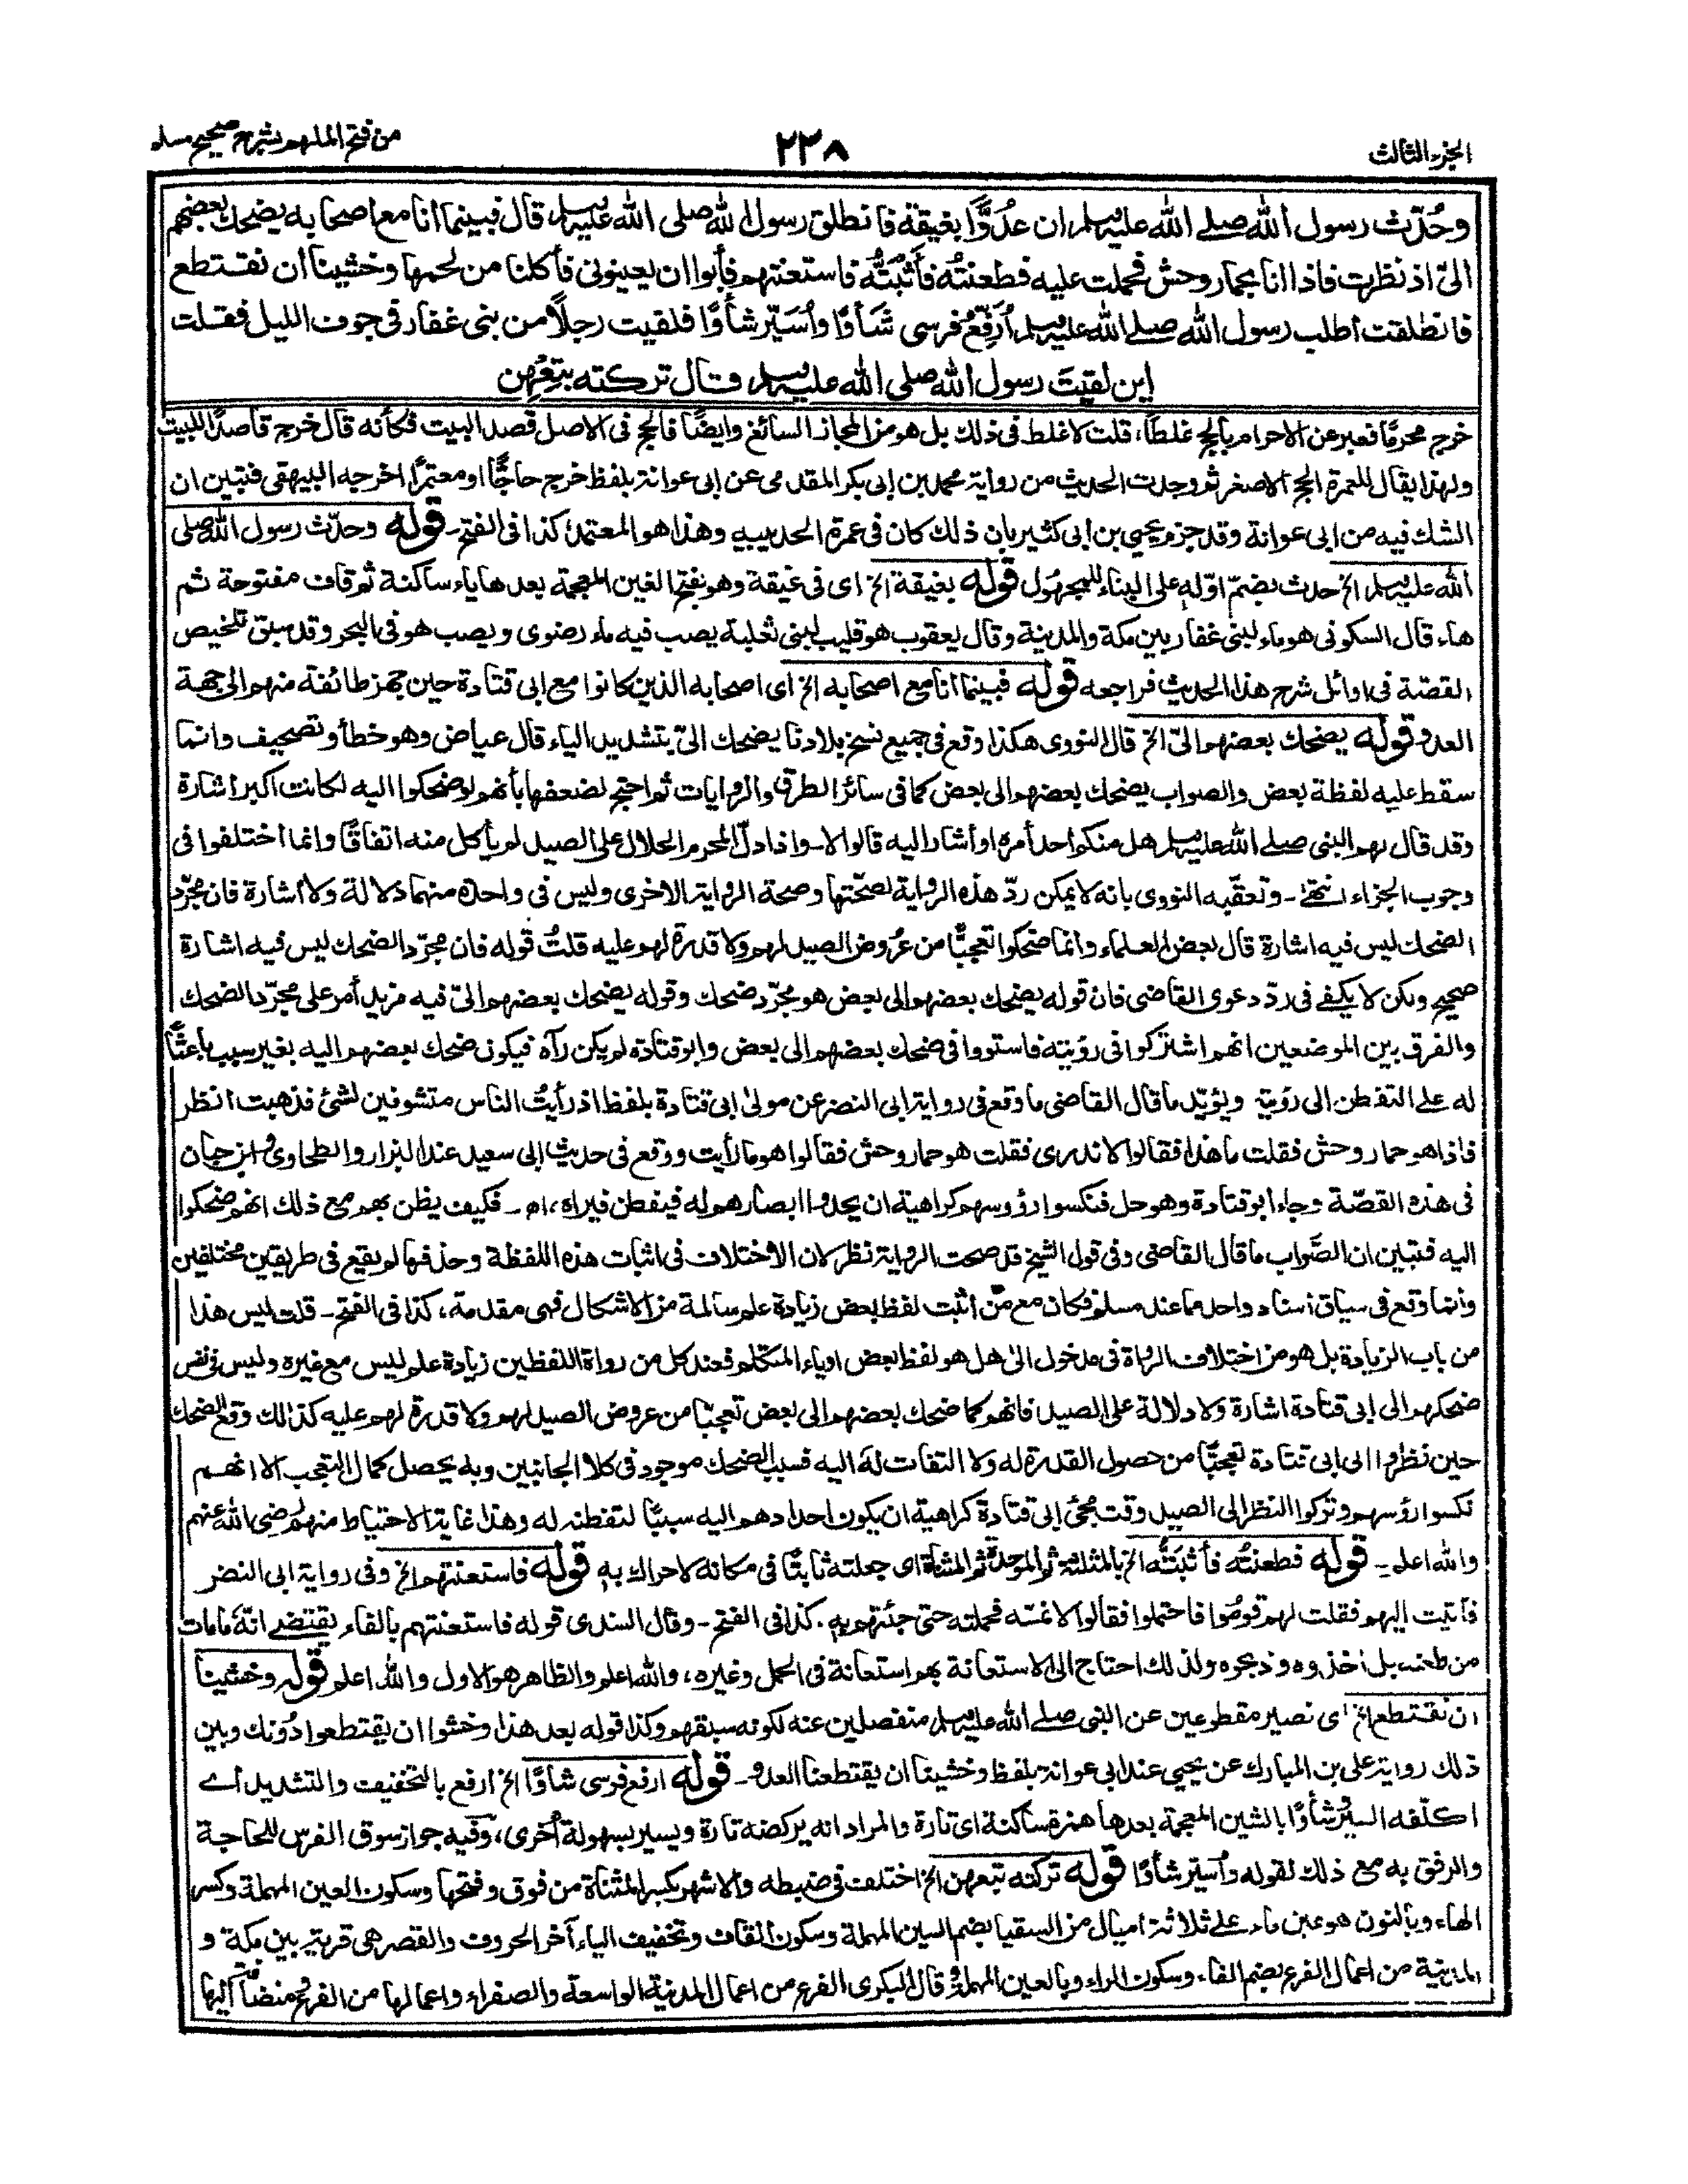 الجزء الثالث
٢٢٨
من فتح الملهم بشرح صحيح مسلم
وحُدِّث رسول الله صلى الله عليه وسلم ان عدُوًّا بغيقة فانطلق رسول الله صلى الله عليه وسلم قال فبينما انا مع اصحابه يضحك بعضهم
الىّ اذ نظرت فاذا انا بحمار وحش فحملت عليه فطعنتُه فأَثْبَتُّه فاستعنتهم فأبوا ان يعينونى فأكلنا من لحمها وخشينا أن نقتطع
فانطلقت أطلب رسول الله صلى الله عليه وسلم أُرَفِّعُ فرسى شَأْوًا وأُسَيّر شأْوًا فلقيت رجلاً من بنى غفار فى جوف الليل فقلت
اين لقيتَ رسول الله صلى الله عليه وسلم قال تركته بتِعْهِن
خرج محرمًا فعبر عن الاحرام بالحج غلطًا، قلت لا غلط فى ذلك بل هو من المجاز السائغ وايضًا فالحج فى الاصل قصد البيت فكأنه قال خرج قاصدًا للبيت
ولهذا يقال للعمرة الحج الاصغر ثم وجدت الحديث من رواية محمد بن ابى بكر المقدمى عن ابى عوانة بلفظ خرج حاجًّا او معتمرًا اخرجه البيهقى فتبين ان
الشك فيه من ابى عوانة وقد جزم يحيى بن ابى كثير بان ذلك كان فى عمرة الحديبيه وهذا هو المعتمد، كذا فى الفتح۔ قوله وحدّث رسول الله صلى
الله عليه وسلم الخ حدث بضمّ اوّله على البناء للمجهول قوله بغيقة الخ اى فى غيقة وهو بفتح الغين المعجمة بعدها ياء ساكنة ثم قاف مفتوحة ثم
هاء قال السكونى هو ماء لبنى غفار بين مكة والمدينة وقال يعقوب هو قليب لبنى ثعلبة يصب فيه ماء رضوى ويصب هو فى البحر وقد سبق تلخيص
القصّة فى اوائل شرح هذا الحديث فراجعه قوله فبينما انا مع اصحابه الخ اى اصحابه الذين كانوا مع ابى قتادة حين جهز طائفة منهم الى جهة
العدو قوله يضحك بعضهم الىّ الخ قال النووى هكذا وقع فى جميع نسخ بلادنا يضحك الىّ بتشديد الياء قال عياض وهو خطأ وتصحيف وانما
سقط عليه لفظة بعض والصواب يضحك بعضهم الى بعض كما فى سائر الطرق والروايات ثم احتج لضعفها بأنهم لو ضحكوا اليه لكانت اكبر اشارة
وقد قال لهم النبى صلى الله عليه وسلم هل منكم أحد أمره او أشار اليه قالوا لا۔ واذا دلّ المحرم الحلال على الصيد لم يأكل منه اتفاقًا وانما اختلفوا فى
وجوب الجزاء انتهى۔ وتعقّبه النووى بانه لا يمكن ردّ هذه الرواية لصحّتها وصحة الرواية الاخرى وليس فى واحدة منهما دلالة ولا اشارة فان مجرّد
الضحك ليس فيه اشارة قال بعض العلماء وانما ضحكوا تعجبًا من عُروض الصيد لهم ولا قدرة لهم عليه قلتُ قوله فان مجرّد الضحك ليس فيه اشارة
صحيح ولكن لا يكفى فى ردّ دعوى القاضى فان قوله يضحك بعضهم الى بعض هو مجرّد ضحك وقوله يضحك بعضهم الىّ فيه مزيد أمر على مجرّد الضحك
والفرق بين الموضعين انهم اشتركوا فى رؤيته فاستووا فى ضحك بعضهم الى بعض وابو قتادة لم يكن رآه فيكون ضحك بعضهم اليه بغير سبب باعثًا
له على التفطن الى رؤيته ويؤيّد ما قال القاضى ما وقع فى رواية ابى النضر عن مولى ابى قتادة بلفظ اذ رأيتُ الناس متشوفين لشئ فذهبت انظر
فاذا هو حمار وحش فقلت ما هذا فقالوا لا ندرى فقلت هو حمار وحش فقالوا هو ما رأيت ووقع فى حديث ابى سعيد عند البزار والطحاوى وابن حبان
فى هذه القصّة وجاء ابو قتادة وهو حل فنكسوا رؤوسهم كراهية ان يحدوا ابصارهم له فيفطن فيراه، اھ۔ فكيف يظن بهم مع ذلك انهم ضحكوا
اليه فتبين ان الصّواب ما قال القاضى وفى قول الشيخ قد صحت الرواية نظر لان الاختلاف فى اثبات هذه اللفظة وحذفها لم يقع فى طريقين مختلفين
وانما وقع فى سياق اسناد واحد مما عند مسلم فكان مع مَن أثبت لفظ بعض زيادة علم سالمة من الاشكال فهى مقدمة، كذا فى الفتح۔ قلت ليس هذا
من باب الزيادة بل هو من اختلاف الرواة فى مدخول الى هل هو لفظ بعض او ياء المتكلم فعند كل من رواة اللفظين زيادة علم ليس مع غيره وليس فى نفس
ضحكهم الى ابى قتادة اشارة ولا دلالة على الصيد فانهم كما ضحك بعضهم الى بعض تعجبًا من عروض الصيد لهم ولا قدرة لهم عليه كذالك وقع الضحك
حين نظروا الى ابى قتادة تعجبًا من حصول القدرة له ولا التفات لهَ اليه فسبب الضحك موجود فى كلا الجانبين وبه يحصل كمال التعجب الا انهم
نكسوا رؤسهم وتركوا النظر الى الصيد وقت مجئ ابى قتادة كراهية ان يكون احدادهم اليه سببًا لتفطنه له وهذا غاية الاحتياط منهم رضى الله عنهم
والله اعلم۔ قوله فطعنتُه فأَثبَتُّه الخ بالمثلثة ثم الموحدة ثم المثناة اى جعلته ثابتًا فى مكانه لا حراك به قوله فاستعنتهم الخ وفى رواية ابى النضر
فأتيت اليهم فقلت لهم قومُوا فاحتملوا فقالوا لا نمسّه فحملته حتى جئتهم به. كذا فى الفتح۔ وقال السندى قوله فاستعنتهم بالفاء يقتضى انّهَ مامات
من طعنه بل اخذوه وذبحوه ولذلك احتاج الى الاستعانة بهم استعانة فى الحمل وغيره، والله اعلم والظاهر هو الاول والله اعلم قوله وخشينا
ان نقتطع الخ اى نصير مقطوعين عن النبى صلى الله عليه وسلم منفصلين عنه لكونه سبقهم وكذا قوله بعد هذا وخشوا ان يقتطعوا دُونك وبين
ذلك رواية على بن المبارك عن يحيى عند ابى عوانة بلفظ وخشينا ان يقتطعنا العدو۔ قوله ارفع فرسى شاوًا الخ ارفع بالتخفيف والتشديد اے
اكلّفه السير شأْوًا بالشين المعجمة بعدها همزة ساكنة اى تارة والمراد انه يركضه تارة ويسير بسهولة أُخرى، وفيه جواز سوق الفرس للحاجة
والرفق به مع ذلك لقوله وأسيّر شأوًا قوله تركته بتعهن الخ اختلف فى ضبطه والاشهر بكسر المثناة من فوق وفتحها وسكون العين المهملة وكسر
الهاء وبالنون هو عين ماء على ثلاثة اميال من السقيا بضم السين المهملة وسكون القاف وتخفيف الياء آخر الحروف والقصر هى قرية بين مكة و
المدينة من اعمال الفرع بضم الفاء وسكون الراء وبالعين المهملة وقال البكرى الفرع من اعمال المدينة الواسعة والصفراء واعمالها من الفرع منضافة اليها